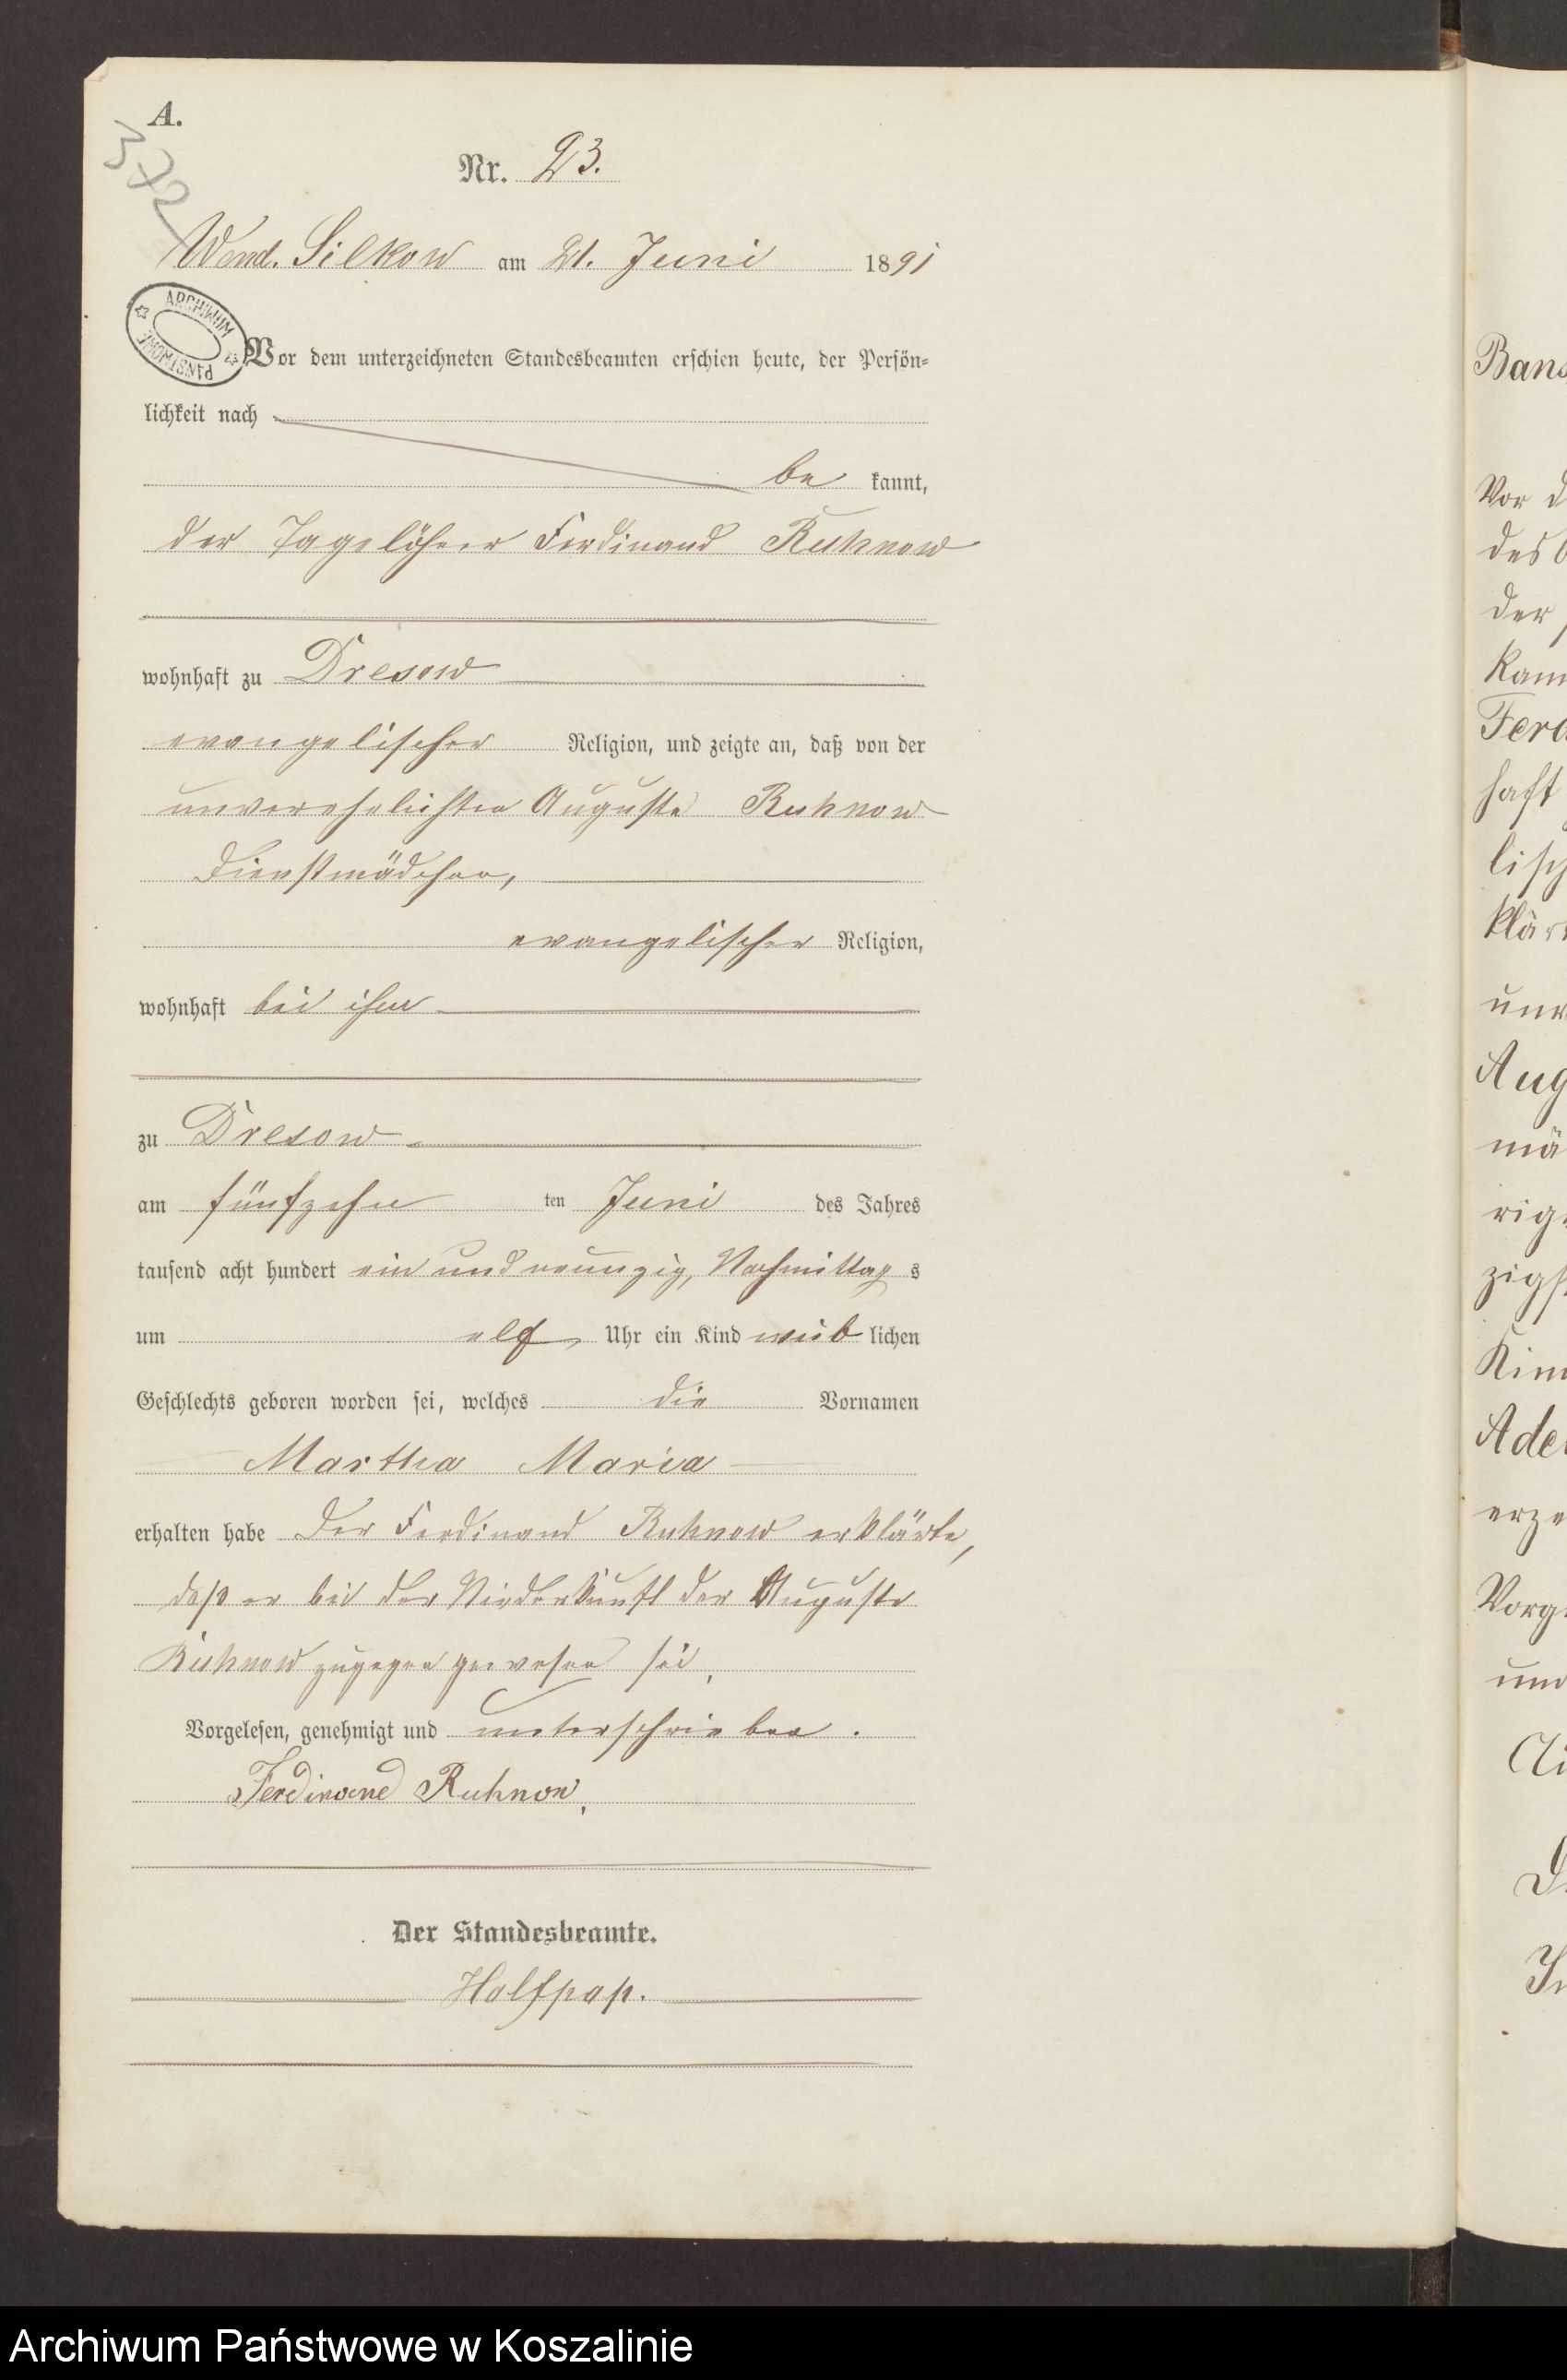 A.
372
Nr. 23.
Wend. Silkow am 21. Juni 1891
ARCHIWUM PAŃSTWOWE
Vor dem unterzeichneten Standesbeamten erschien heute, der Persön-
lichkeit nach
be kannt,
der Tagelöhner Ferdinand Ruhnow
wohnhaft zu Dresow
evangelischer Religion, und zeigte an, daß von der
unverehelichten Auguste Ruhnow
Dienstmädchen,
evangelischer Religion,
wohnhaft bei ihm
zu Dresow
am fünfzehn ten Juni des Jahres
tausend acht hundert ein und neunzig, Nachmittag s
um elf Uhr ein Kind weib lichen
Geschlechts geboren worden sei, welches die Vornamen
Martha Maria
erhalten habe Der Ferdinand Ruhnow erklärte,
daß er bei der Niederkunft der Auguste
Ruhnow zugegen gewesen sei.
Vorgelesen, genehmigt und unterschrieben.
Ferdinand Ruhnow.
Der Standesbeamte.
Halfpap.
Bans
Vor d
des
der
kann
Ferd
haft
lisch
klär
unv
Aug
mä
rig
zigst
Kin
Ade
erze
Vorg
und
Archiwum Państwowe w Koszalinie